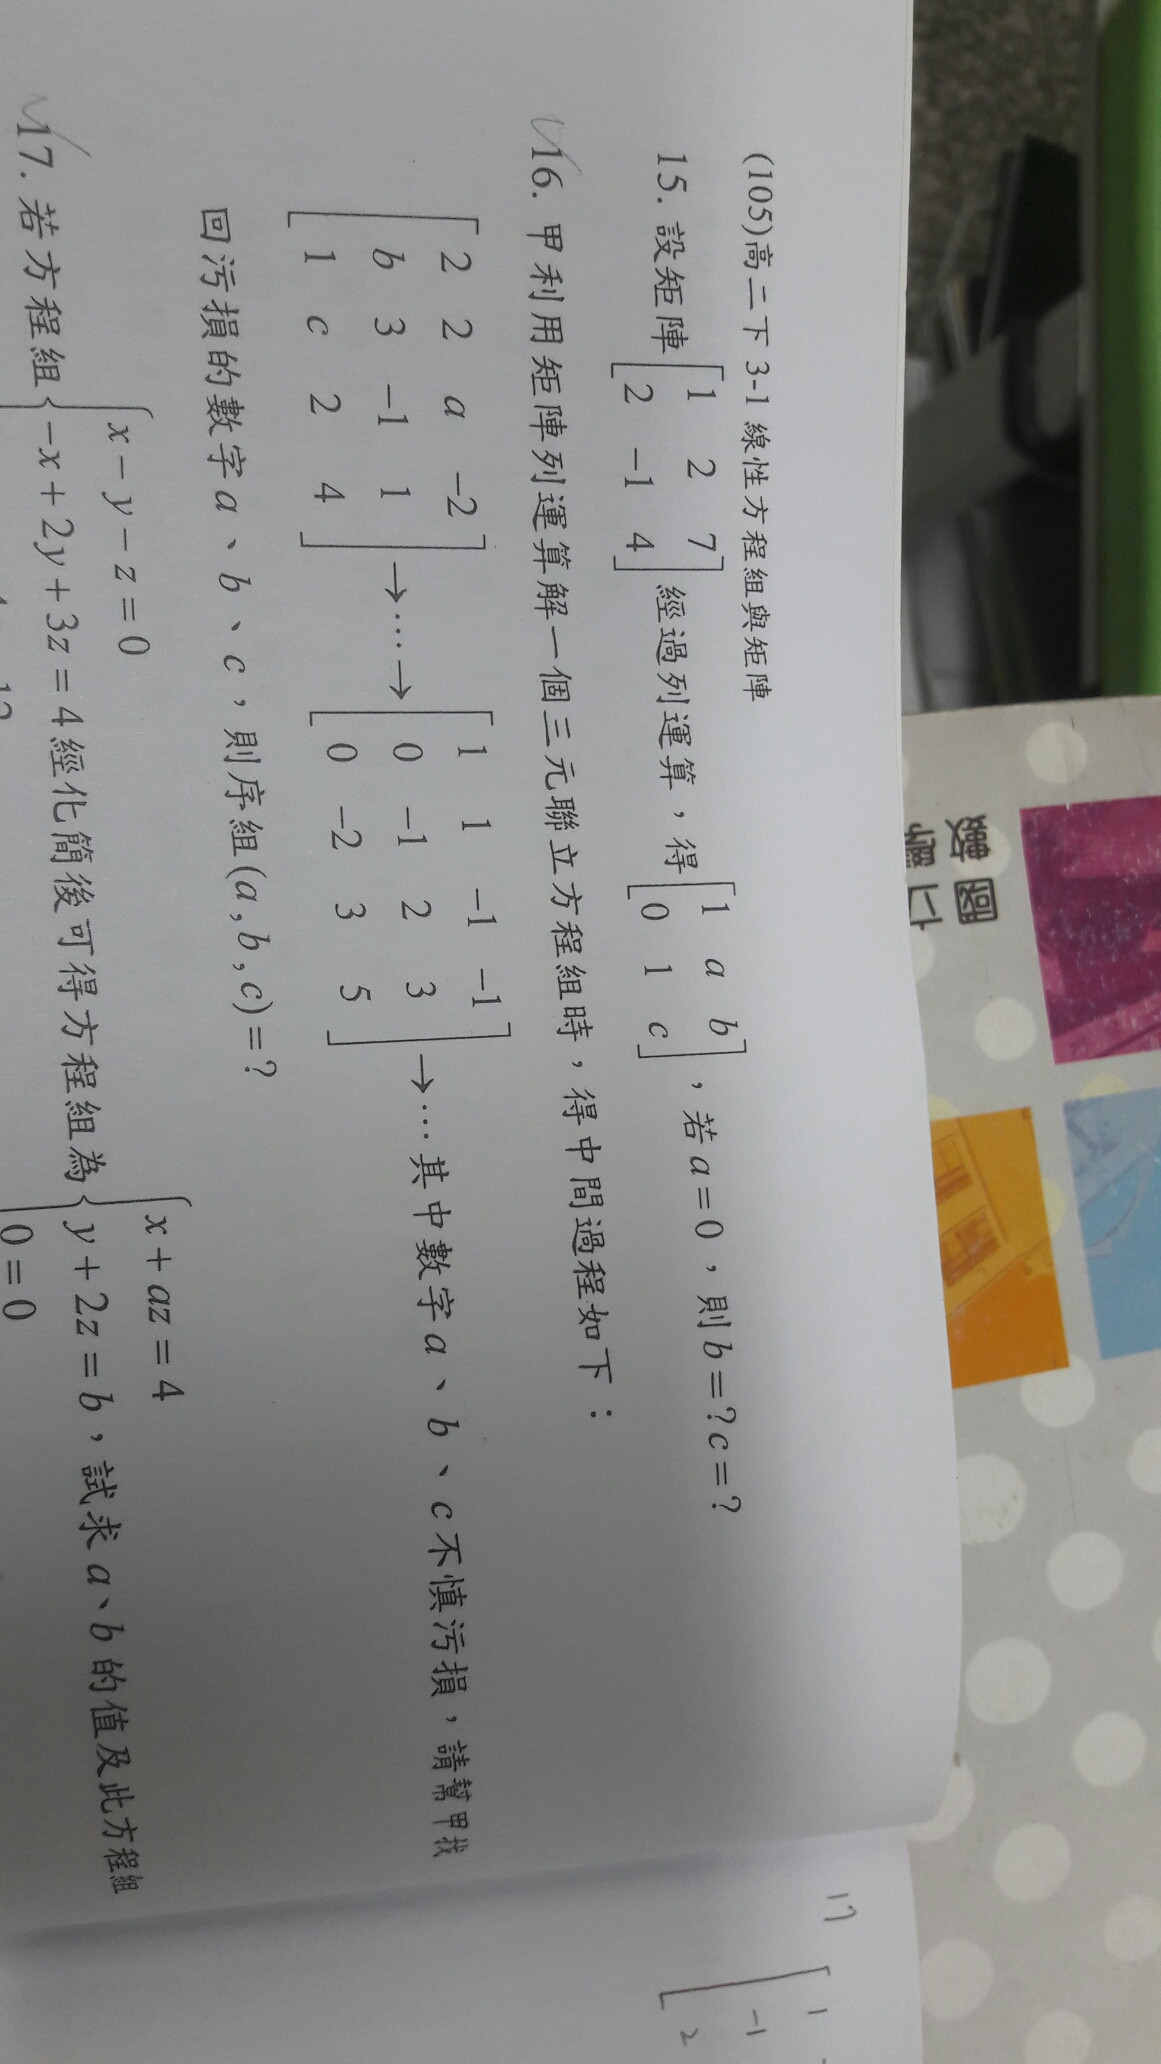 (105)高二下 3-1 線性方程組與矩陣
15. 設矩陣 [1 2 7; 2 -1 4] 經過列運算，得 [1 a b; 0 1 c]，若 a=0，則 b=? c=?
16. 甲利用矩陣列運算解一個三元聯立方程組時，得中間過程如下：
[2 2 a -2; b 3 -1 1; 1 c 2 4] →…→ [1 1 -1 -1; 0 -1 2 3; 0 -2 3 5] →… 其中數字 a、b、c 不慎污損，請幫甲找
回污損的數字 a、b、c，則序組(a,b,c)=?
17. 若方程組 { x-y-z=0; -x+2y+3z=4 經化簡後可得方程組為 { x+az=4; y+2z=b; 0=0，試求 a、b 的值及此方程組
數
圖
17
[1
-1
2